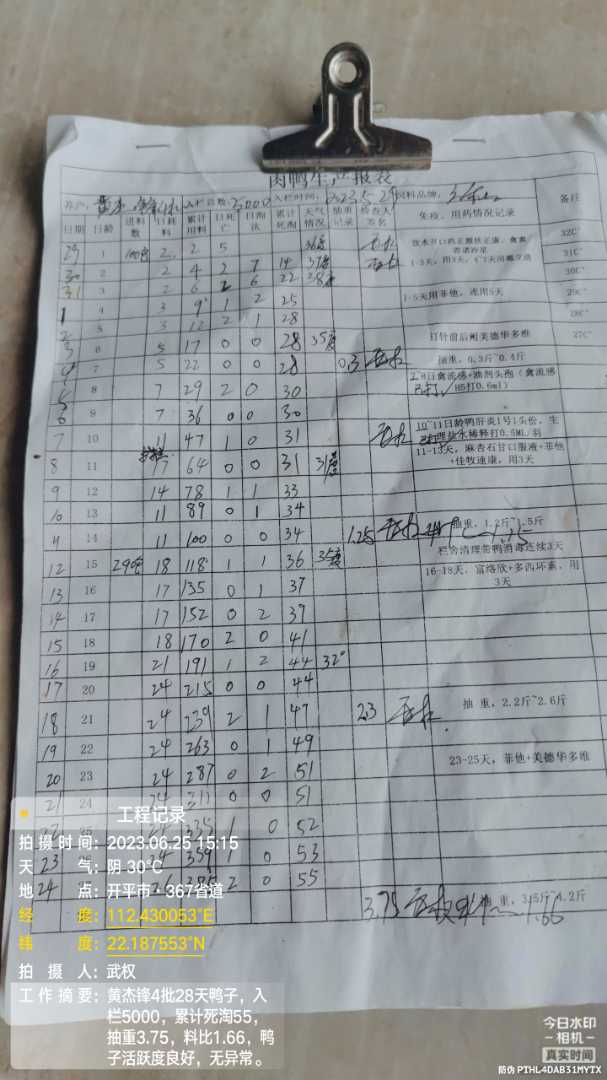 肉鸭生产报表
5000 入栏时间: 2023.5.29 饲料品牌:
日期 日龄 进料数 日耗料 累计用料 日死亡 日淘汰 累计死淘 天气情况 抽重记录 检查人签名 免疫、用药情况记录 备注
29 1 2 2 5 36度 32C°
30 2 2 4 2 7 14 37度 1-3天,用3天 31C°
31 3 2 6 2 6 22 28度 30C°
1 4 3 9 1 2 25 1-5天用菲他,连用5天 29C°
2 5 3 12 2 1 28 28C°
3 6 5 17 0 0 28 35度 打针前后用美德华多维 27C°
4 7 5 22 0 0 28 0.3 抽重,0.3斤~0.4斤
5 8 7 29 2 0 30
6 9 7 36 0 0 30
7 10 11 47 1 0 31 10~11日龄鸭肝炎1号1头份,生理盐水稀释打0.5ML/羽
8 11 17 64 0 0 31 31度 11-13天,麻杏石甘口服液+菲他+佳牧速康,用3天
9 12 14 78 1 1 33
10 13 11 89 0 1 34
11 14 11 100 0 0 34 1.25 抽重,1.2斤~1.5斤
栏舍清理带鸭消毒连续3天
12 15 290包 18 118 1 1 36 35度
13 16 17 135 0 1 37 16-18天,富络欣+多西环素,用3天
14 17 17 152 0 2 39
15 18 18 170 2 0 41
16 19 21 191 1 2 44 32°
17 20 24 215 0 0 44
18 21 24 239 2 1 47 2.3 抽重,2.2斤~2.6斤
19 22 24 263 0 1 49
20 23 24 287 0 2 51 23-25天,菲他+美德华多维
21 24 24 311 0 0 51
335 1 0 52
23 24 359 1 0 53
24 26 385 2 0 55
3.75 1.66
工程记录
拍摄时间: 2023.06.25 15:15
天 气: 阴 30℃
地 点: 开平市·367省道
经 度: 112.430053°E
纬 度: 22.187553°N
拍 摄 人: 武权
工作摘要: 黄杰锋4批28天鸭子,入
栏5000,累计死淘55,
抽重3.75,料比1.66,鸭
子活跃度良好,无异常。
今日水印
-相机-
真实时间
防伪 PTHL4DAB31MYTX